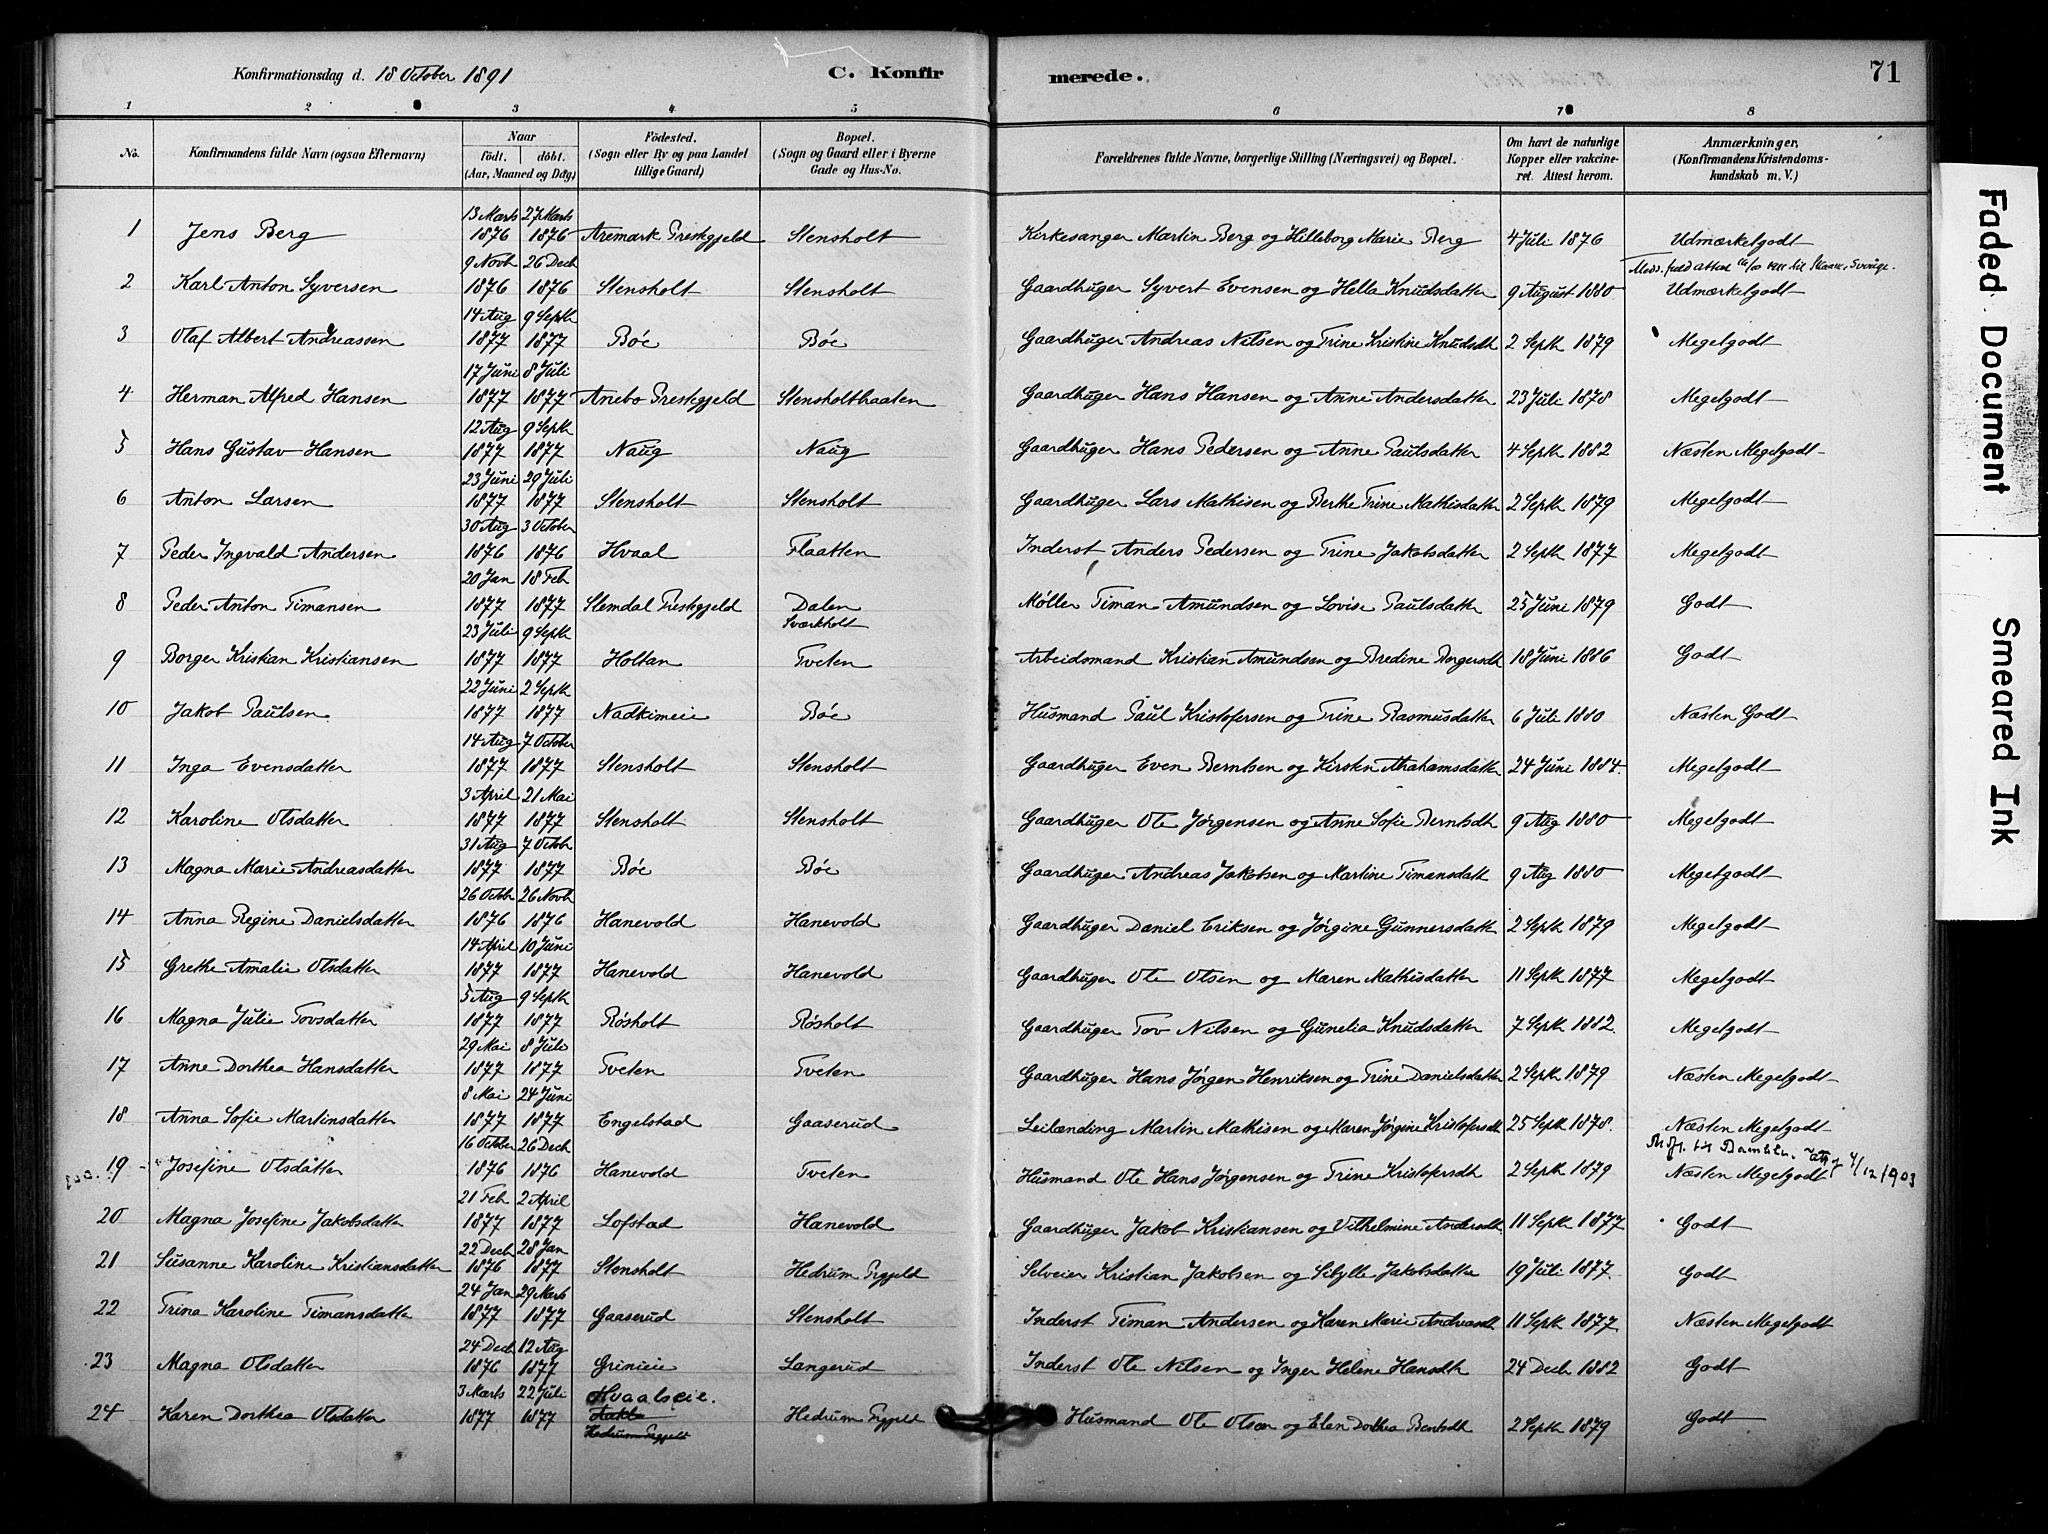 Konfirmationsdag d. 18 October 1891 C. Konfirmerede. 71
1 2 3 4 5 6 7 8
No. Konfirmandens fulde Navn (ogsaa Efternavn) Naar født. døbt. (Aar, Maaned og Dag) Fødested. (Sogn eller By og paa Landet tillige Gaard) Bopæl. (Sogn og Gaard eller i Byerne Gade og Hus-No. Forældrenes fulde Navne, borgerlige Stilling (Næringsvei) og Bopæl. Om havt de naturlige Kopper eller vakcineret. Attest herom. Anmærkninger, (Konfirmandens Kristendomskundskab m. V.)
1 Jens Berg 13 Marts 1876 27 Marts 1876 Aremark Prestegjeld Stensholt Kirkesanger Martin Berg og Hilleborg Marie Berg 4 Juli 1876 Udmærketgodt
2 Karl Anton Syversen 9 Novb 1876 26 Dech 1876 Stensholt Stensholt Gaardbuger Syvert Evensen og Hella Knudsdatter 9 August 1880 Udmærketgodt
3 Olaf Albert Andreassen 14 Aug 1877 9 Septb 1877 Bøe Bøe Gaardbuger Andreas Nilsen og Trine Kristine Knudsdt 2 Septb 1879 Megetgodt
4 Herman Alfred Hansen 17 Juni 1877 8 Juli 1877 Anebo Prestegjeld Stensholtbaaten Gaardbuger Hans Hansen og Anne Andersdatter 23 Juli 1878 Megetgodt
5 Hans Gustav Hansen 12 Aug 1877 9 Septb 1877 Naug Naug Gaardbuger Hans Pedersen og Anne Paulsdatter 4 Septb 1882 Næsten Megetgodt
6 Anton Larsen 23 Juni 1877 29 Juli 1877 Stensholt Stensholt Gaardbuger Lars Mathisen og Berthe Trine Mathisdatter 2 Septb 1879 Megetgodt
7 Peder Ingvald Andersen 30 Aug 1876 3 October 1876 Hvaal Flaatten Inderst Anders Pedersen og Trine Jakobsdatter 2 Septb 1877 Megetgodt
8 Peder Anton Timansen 20 Jan 1877 18 Feb 1877 Slemdal Prestegjeld Dalen Sværkholt Møller Timan Amundsen og Lovise Paulsdatter 25 Juni 1879 Godt
9 Borger Kristian Kristiansen 23 Juli 1877 9 Septb 1877 Holtan Tveten Arbeidsmand Kristian Amundsen og Bredine Borgersdt 18 Juni 1886 Godt
10 Jakob Paulsen 22 Juni 1877 2 Septb 1877 Nadkimeie Bøe Husmand Paul Kristofersen og Trine Rasmusdatter 6 Juli 1880 Næsten Godt
11 Inga Evensdatter 14 Aug 1877 7 October 1877 Stensholt Stensholt Gaardbuger Even Berntsen og Kirsten Abrahamsdatter 24 Juni 1884. Megetgodt
12 Karoline Olsdatter 3 April 1877 21 Mai 1877 Stensholt Stensholt Gaardbuger Ole Jørgensen og Anne Sofie Berntsdt 9 Aug 1880 Megetgodt
13 Magna Marie Andreasdatter 31 Aug 1877 7 Octob 1877 Bøe Bøe Gaardbuger Andreas Jakobsen og Martine Timansdatt 9 Aug 1880 Megetgodt
14 Anna Regine Danielsdatter 26 Octobr 1876 26 Novb 1876 Hanevold Hanevold Gaardbuger Daniel Eriksen og Jørgine Gunnersdatt 2 Septb 1879 Megetgodt
15 Grethe Amalie Olsdatter 14 April 1877 10 Juni 1877 Hanevold Hanevold Gaardbuger Ole Olsen og Maren Mathisdatter 11 Septb 1877 Megetgodt
16 Magna Julie Tovsdatter 5 Aug 1877 9 Septb 1877 Røsholt Røsholt Gaardbuger Tov Nilsen og Gunelia Knudsdatter 7 Septb 1882. Megetgodt
17 Anne Dorthea Hansdatter 29 Mai 1877 8 Juli 1877 Tveten Tveten Gaardbuger Hans Jørgen Henriksen og Trine Danielsdatter 2 Septb 1879 Næsten Megetgodt
18 Anna Sofie Martinsdatter 8 Mai 1877 24 Juni 1877 Engelstad Gaaserud Leilænding Martin Mathisen og Maren Jørgine Kristofersdt 25 Septb 1878. Næsten Megetgodt
19 Josefine Olsdatter 16 October 1876 26 Dech 1876 Hanevold Tveten Husmand Ole Hans Jørgensen og Trine Kristofersdt 2 Septb 1879 Næsten Megetgodt 4/12 1903
20 Magna Josefine Jakobsdatter 21 Feb 1877 2 April 1877 Lofstad Hanevold Gaardbuger Jakob Kristiansen og Vilhelmine Andersdt 11 Septb 1877 Godt
21 Susanne Karoline Kristiansdatter 22 Dech 1876 28 Jan 1877 Stensholt Hedrum Prgjeld Selveier Kristian Jakobsen og Sibylle Jakobsdatter 19 Juli 1877. Godt
22 Trina Karoline Timansdatter 24 Jan 1877 29 Marts 1877 Gaaserud Stensholt Inderst Timan Andersen og Karen Marie Andreasdt 11 Septb 1877. Næsten Megetgodt
23 Magna Olsdatter 24 Dech 1876 12 Aug 1877 Grinieie Langerud Inderst Ole Nilsen og Inger Helene Hansdt 24 Dech 1882 Godt
24 Karen Dorthea Olsdatter 3 Marts 1877 22 Juli 1877 Hvaalseie. Hedrum Prgjeld Hedrum Prgjeld Husmand Ole Olsen og Elen Dorthea Berntsdt 2 Septb 1879 Godt
Faded Document
Smeared Ink